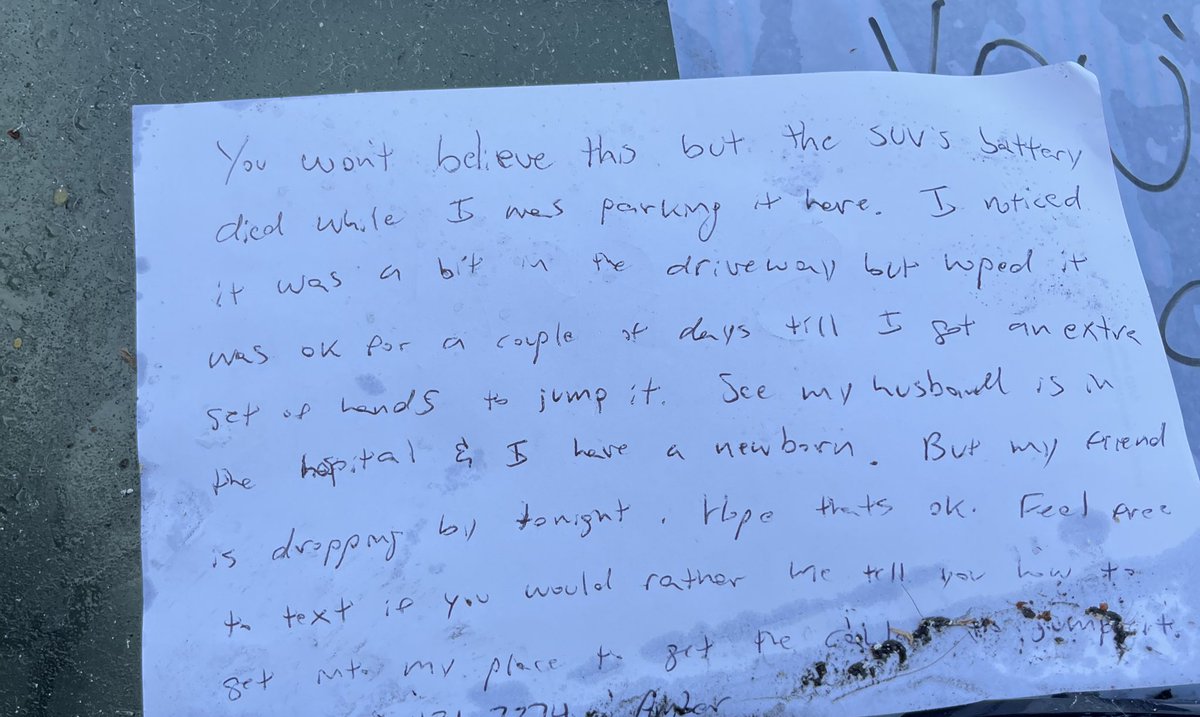 You won't believe this but the SUV's battery
died while I was parking it here. I noticed
it was a bit in the driveway but hoped it
was ok for a couple of days till I got an extra
set of hands to jump it. See my husband is in
the hospital & I have a newborn. But my friend
is dropping by tonight. Hope thats ok. Feel free
to text if you would rather me tell you how to
get into my place to get the to jump it.
7774